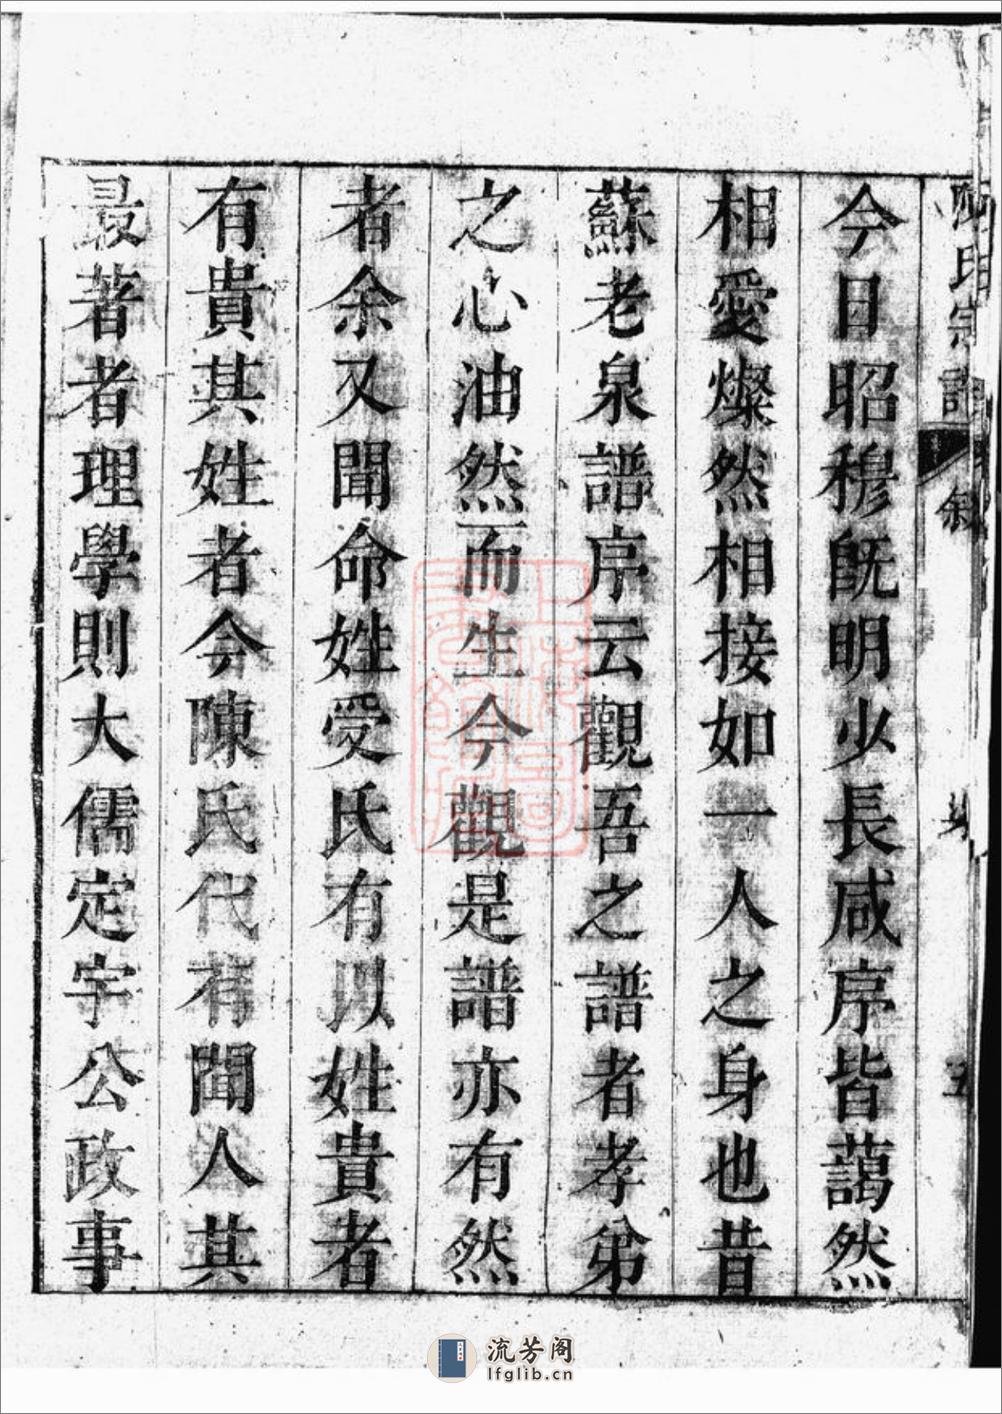 陳氏宗譜 叙 五
今日昭穆旣明少長咸序皆藹然
相愛燦然相接如一人之身也昔
蘇老泉譜序云觀吾之譜者孝弟
之心油然而生今觀是譜亦有然
者余又聞命姓受氏有以姓貴者
有貴其姓者今陳氏代有聞人其
最著者理學則大儒定宇公政事
流芳阁
lfglib.cn